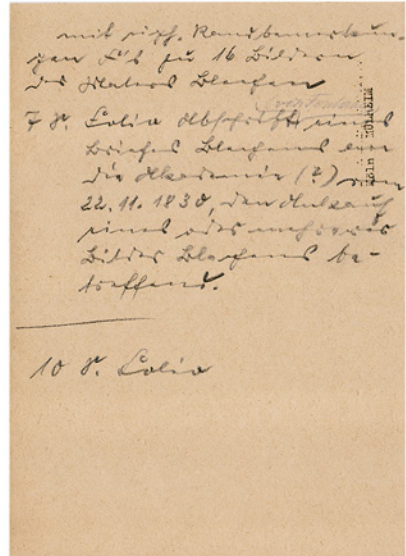 mit eigh. Randbemerkun-
gen F's zu 16 Bildern
des Malers Blechen
7 F. Folio Abschrift eines
Briefes Blechens an
die Akademie (?) vom
22. 11. 1838, den Ankauf
eines oder mehrerer
Bilder Blechens be-
treffend.
10 F. Folio
Köln MÜLHEIM